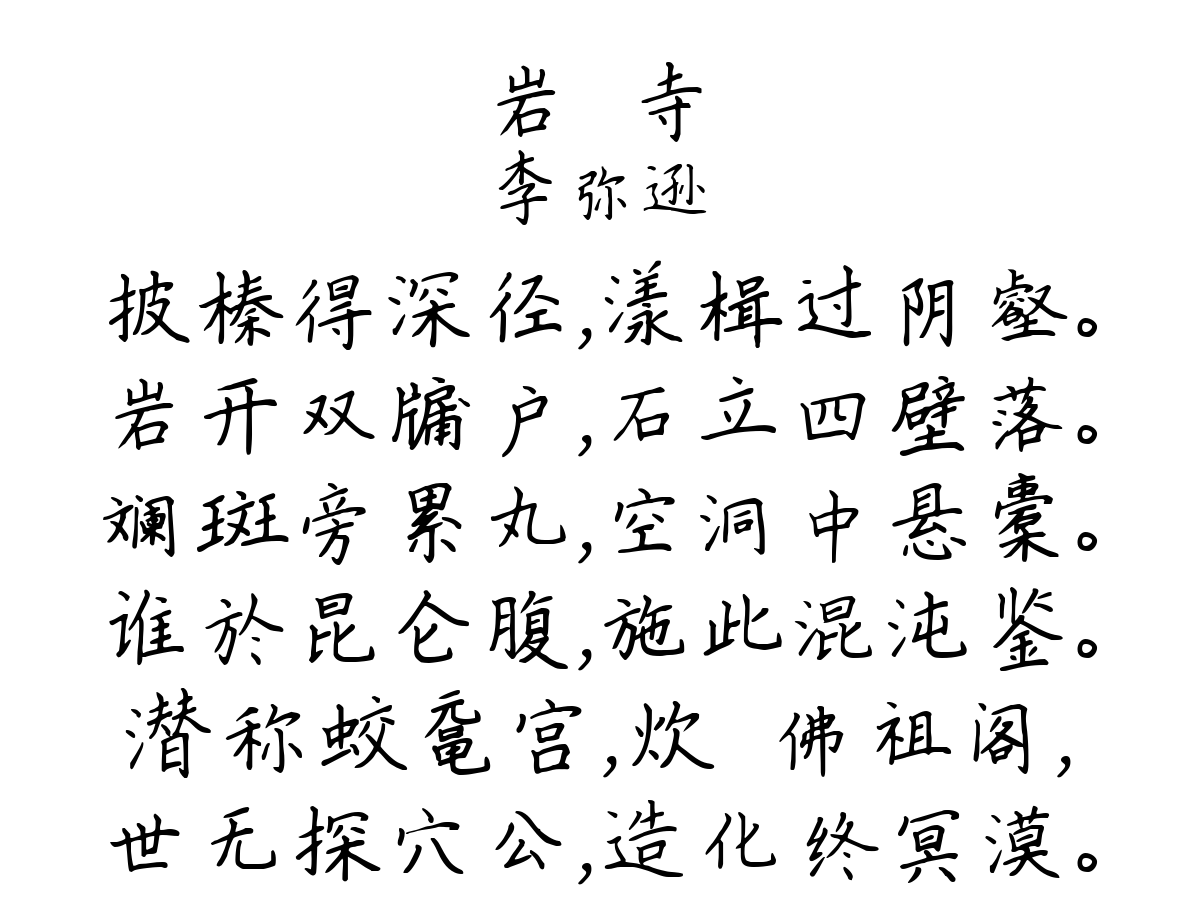 岩 寺
李弥逊
披榛得深径,漾楫过阴壑。
岩开双牖户,石立四壁落。
斓斑旁累丸,空洞中悬橐。
谁於昆仑腹,施此混沌鉴。
潜称蛟鼋宫,炊 佛祖阁,
世无探穴公,造化终冥漠。